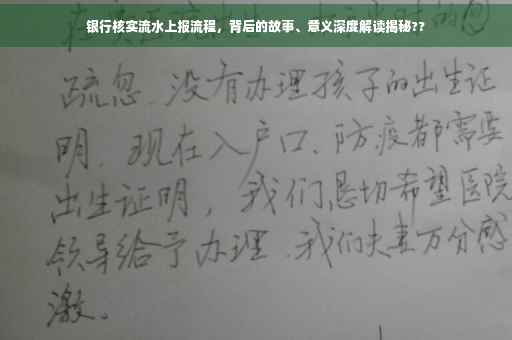 银行核实流水上报流程，背后的故事、意义深度解读揭秘??
疏忽、没有办理孩子的出生证
明、现在入户口、防疫都需要
出生证明，我们恳切希望医院
领导给予办理、我们夫妻万分感
激。